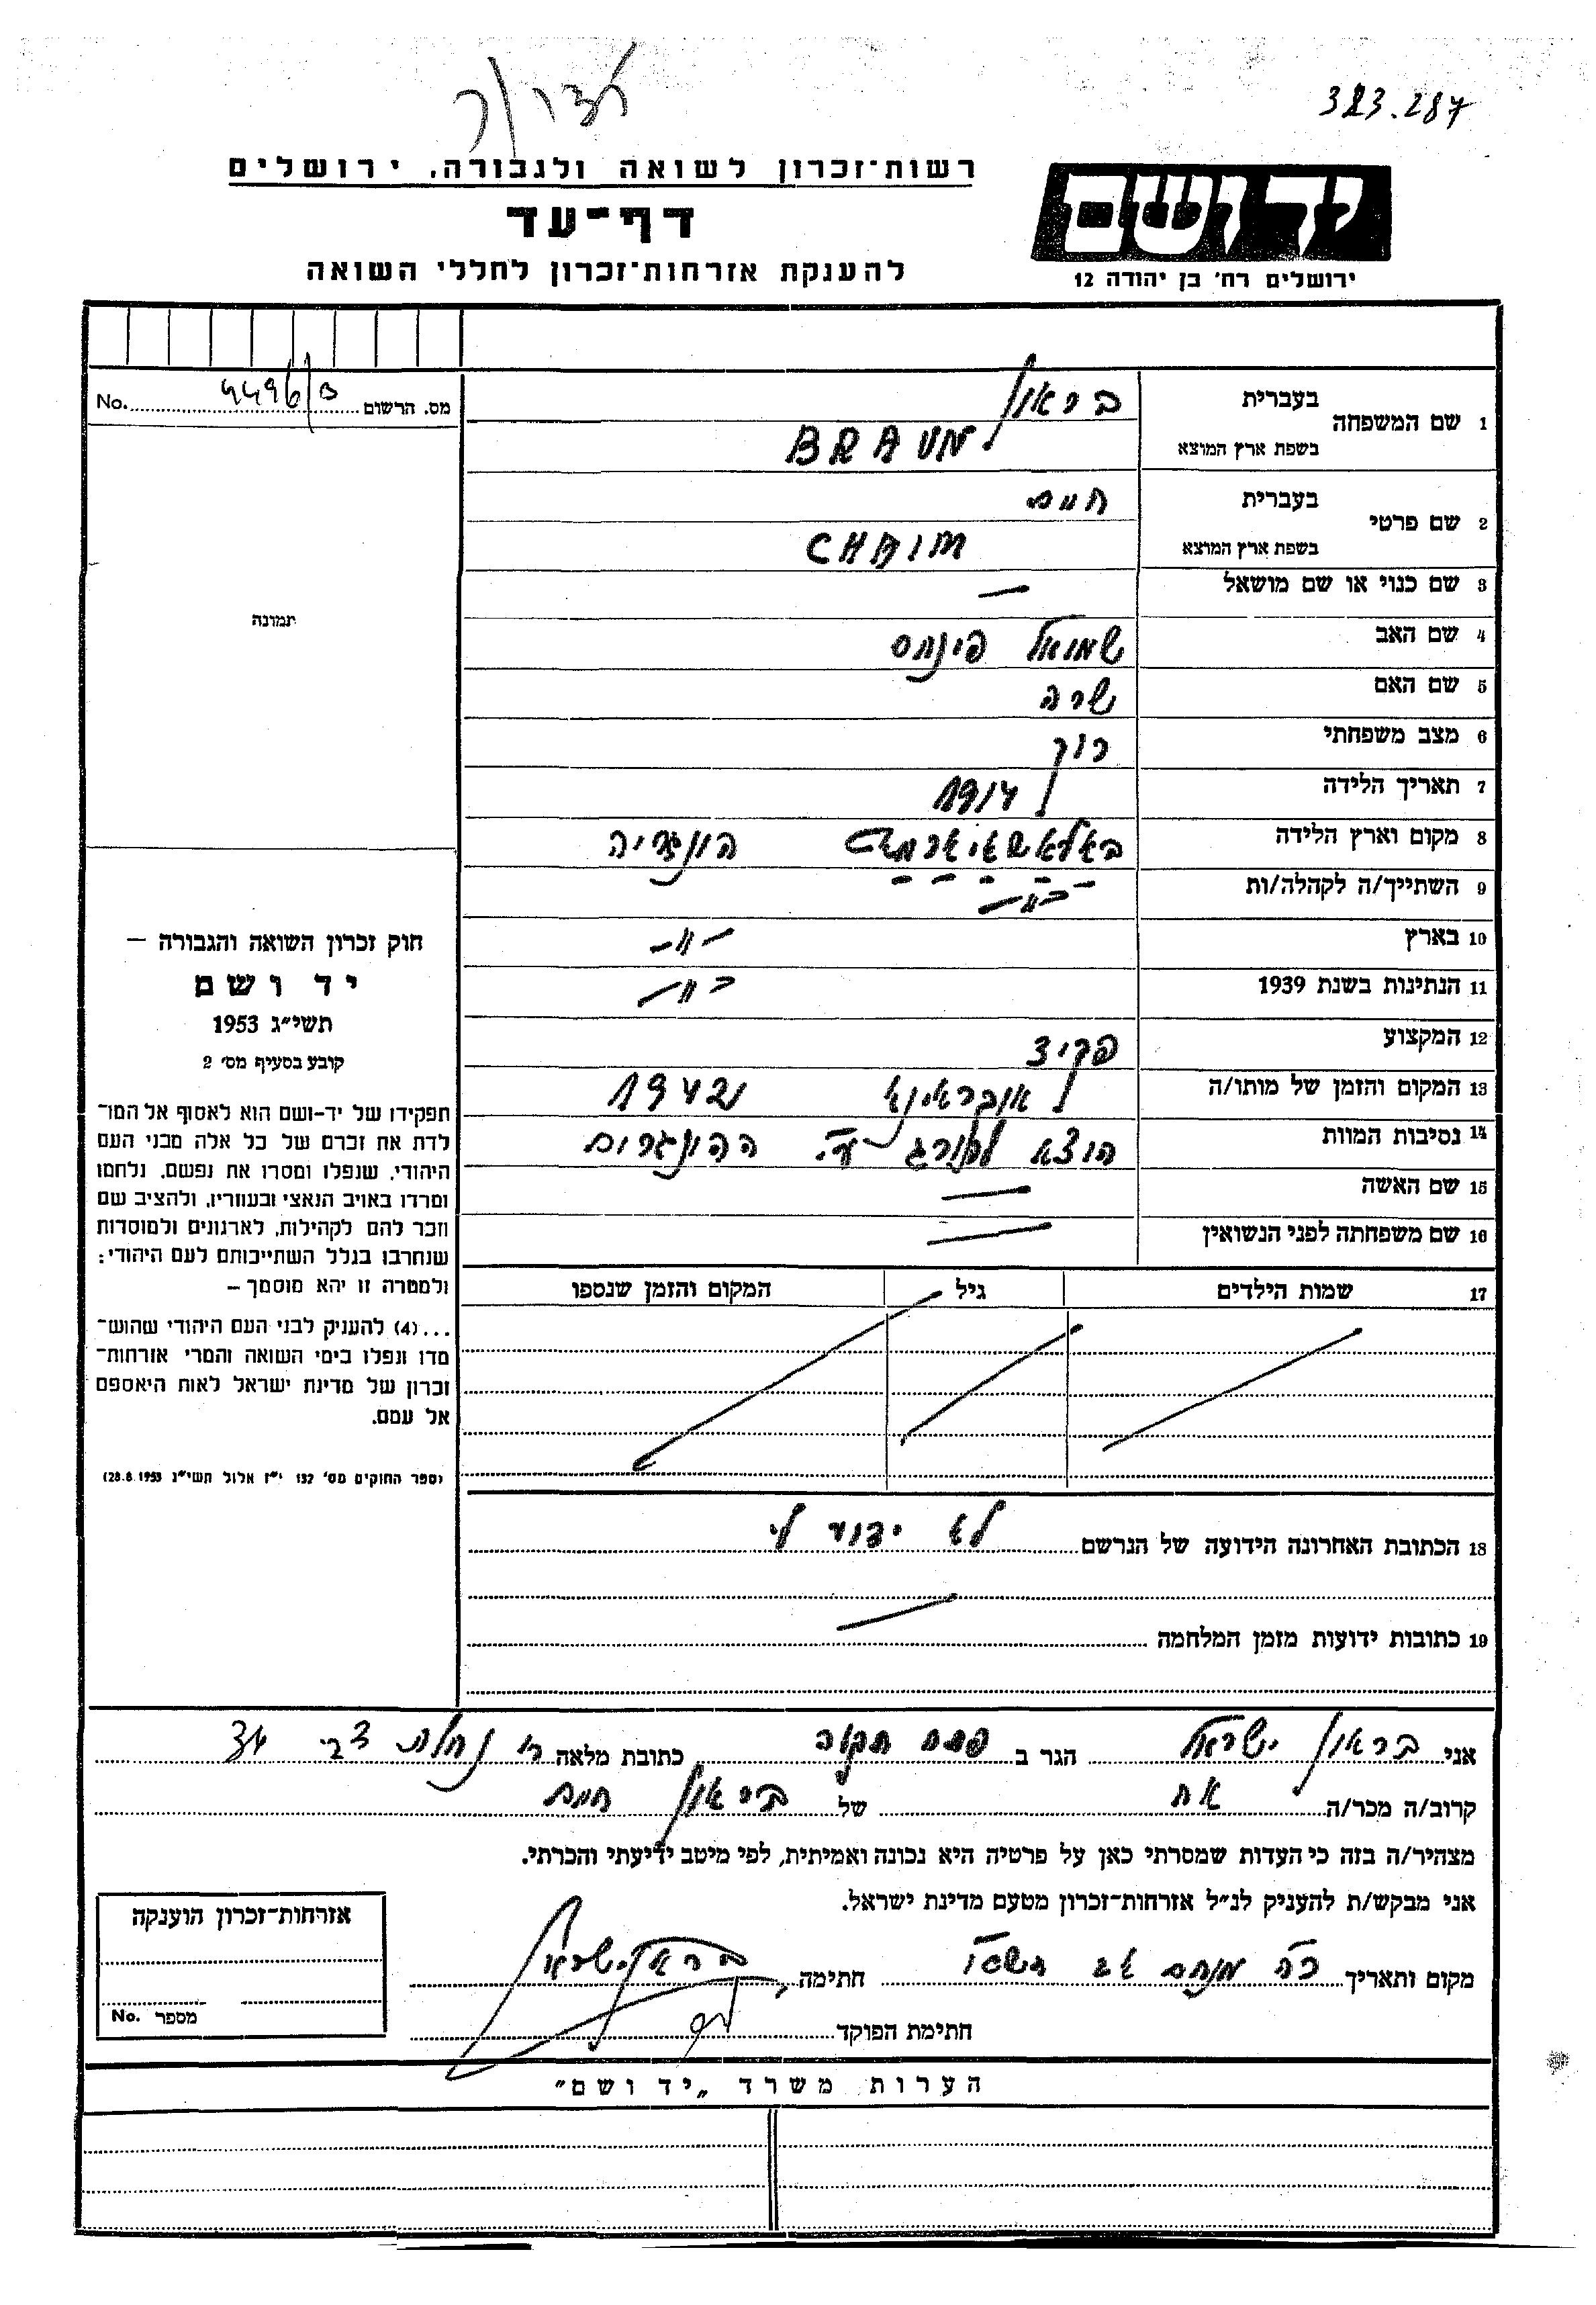 323.287
רשות־זכרון לשואה ולגבורה, ירושלים
יד ושם
דף־עד
ירושלים רח' בן יהודה 12
להענקת אזרחות־זכרון לחללי השואה
מס. הרשום 9496/B No.
1 שם המשפחה בעברית בראון
בשפת ארץ המוצא BRAUN
2 שם פרטי בעברית חיים
בשפת ארץ המוצא CHAIM
3 שם כנוי או שם מושאל —
תמונה
4 שם האב שמואל פינחס
5 שם האם שרה
6 מצב משפחתי רוק
7 תאריך הלידה 1914
8 מקום וארץ הלידה באלאשאיארמט הונגריה
9 השתייך/ה לקהלה/ות -"-
10 בארץ -"-
11 הנתינות בשנת 1939 -"-
12 המקצוע פקיד
13 המקום והזמן של מותו/ה אוקראינא 1942
14 נסיבות המוות הוצא להורג ע"י ההונגרים
15 שם האשה —
16 שם משפחתה לפני הנשואין —
17 שמות הילדים גיל המקום והזמן שנספו
חוק זכרון השואה והגבורה —
יד ושם
תשי״ג 1953
קובע בסעיף מס' 2
תפקידו של יד-ושם הוא לאסוף אל המו־
לדת את זכרם של כל אלה מבני העם
היהודי, שנפלו ומסרו את נפשם, נלחמו
ומרדו באויב הנאצי ובעוזריו, ולהציב שם
וזכר להם לקהילות, לארגונים ולמוסדות
שנחרבו בגלל השתייכותם לעם היהודי:
ולמטרה זו יהא מוסמך –
...(4) להעניק לבני העם היהודי שהוש־
מדו ונפלו בימי השואה והמרי אזרחות־
זכרון של מדינת ישראל לאות היאספם
אל עמם.
(ספר החוקים מס' 132 י״ז אלול תשי״ג 28.8.1953)
18 הכתובת האחרונה הידועה של הנרשם לא ידוע לי
19 כתובות ידועות מזמן המלחמה
אני בראון ישראל הגר ב פתח תקוה כתובת מלאה רח נחלת צבי 34
קרוב/ה מכר/ה אח של בראון חיים
מצהיר/ה בזה כי העדות שמסרתי כאן על פרטיה היא נכונה ואמיתית, לפי מיטב ידיעתי והכרתי.
אני מבקש/ת להעניק לנ״ל אזרחות־זכרון מטעם מדינת ישראל.
מקום ותאריך כ"ה מנחם אב תשט"ו חתימה בראון ישראל
חתימת הפוקד
אזרחות־זכרון הוענקה
מספר No.
הערות משרד „יד ושם"